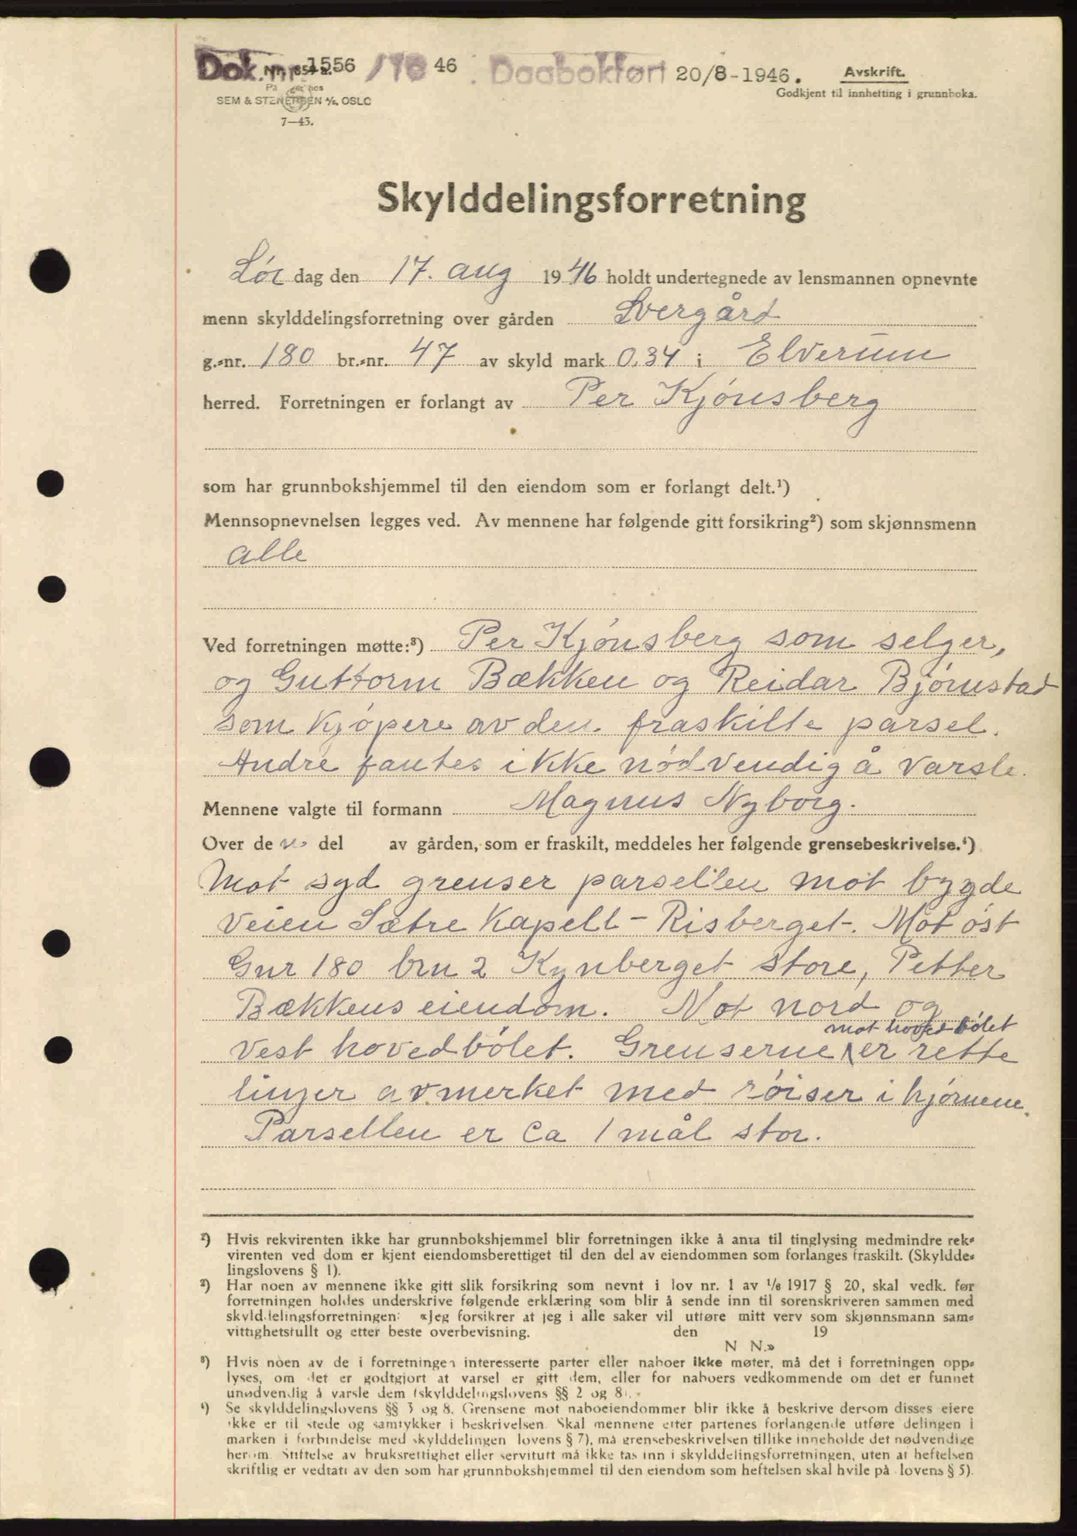 Dok. nr. 1556 /19 46 Dagbokført 20/8-1946. Avskrift.
Godkjent til innhefting i grunnboka.
SEM & STENERSEN A/S, OSLO
7—43.
Skylddelingsforretning
Lør dag den 17. aug 1946 holdt undertegnede av lensmannen opnevnte
menn skylddelingsforretning over gården Svergård
g.-nr. 180 br.-nr. 47 av skyld mark 0.34 i Elverum
herred. Forretningen er forlangt av Per Kjønsberg
som har grunnbokshjemmel til den eiendom som er forlangt delt.¹)
Mennsopnevnelsen legges ved. Av mennene har følgende gitt forsikring²) som skjønnsmenn
alle
Ved forretningen møtte:³) Per Kjønsberg som selger,
og Guttorm Bækken og Reidar Bjørnstad
som kjøpere av den fraskilte parsel.
Andre fantes ikke nødvendig å varsle.
Mennene valgte til formann Magnus Nyborg.
Over de n del av gården, som er fraskilt, meddeles her følgende grensebeskrivelse.⁴)
Mot syd grenser parsellen mot bygde
veien Sætre Kapell - Risberget. Mot øst
Gnr 180 brn 2 Kynberget store, Petter
Bækkens eiendom. Mot nord og
mot hovedbølet
vest hovedbølet. Grenserne er rette
linjer avmerket med røiser i hjørnene.
Parsellen er ca 1 mål stor.
¹) Hvis rekvirenten ikke har grunnbokshjemmel blir forretningen ikke å anta til tinglysing medmindre rek-
virenten ved dom er kjent eiendomsberettiget til den del av eiendommen som forlanges fraskilt. (Skyldde-
lingslovens § 1).
²) Har noen av mennene ikke gitt slik forsikring som nevnt i lov nr. 1 av 1/6 1917 § 20, skal vedk. før
forretningen holdes underskrive følgende erklæring som blir å sende inn til sorenskriveren sammen med
skylddelingsforretningen: «Jeg forsikrer at jeg i alle saker vil utføre mitt verv som skjønnsmann sam-
vittighetsfullt og etter beste overbevisning. den 19
N N.»
³) Hvis noen av de i forretningen interesserte parter eller naboer ikke møter, må det i forretningen opp-
lyses, om det er godtgjort at varsel er gitt dem, eller for naboers vedkommende om det er funnet
unødvendig å varsle dem (skylddelingslovens §§ 2 og 8).
⁴) Se skylddelingslovens §§ 3 og 8. Grensene mot naboeiendommer blir ikke å beskrive dersom disses eiere
ikke er til stede og samtykker i beskrivelsen. Skal mennene etter partenes forlangende utføre delingen i
marken i forbindelse med skylddelingen (lovens § 7), må grensebeskrivelsen tillike inneholde det nødvendige
herom. Stiftelse av bruksrettighet eller servitutt må ikke tas inn i skylddelingsforretningen, uten at heftelsen
skriftlig er vedtatt av den som har grunnbokshjemmel til den eiendom som heftelsen skal hvile på (lovens § 5).